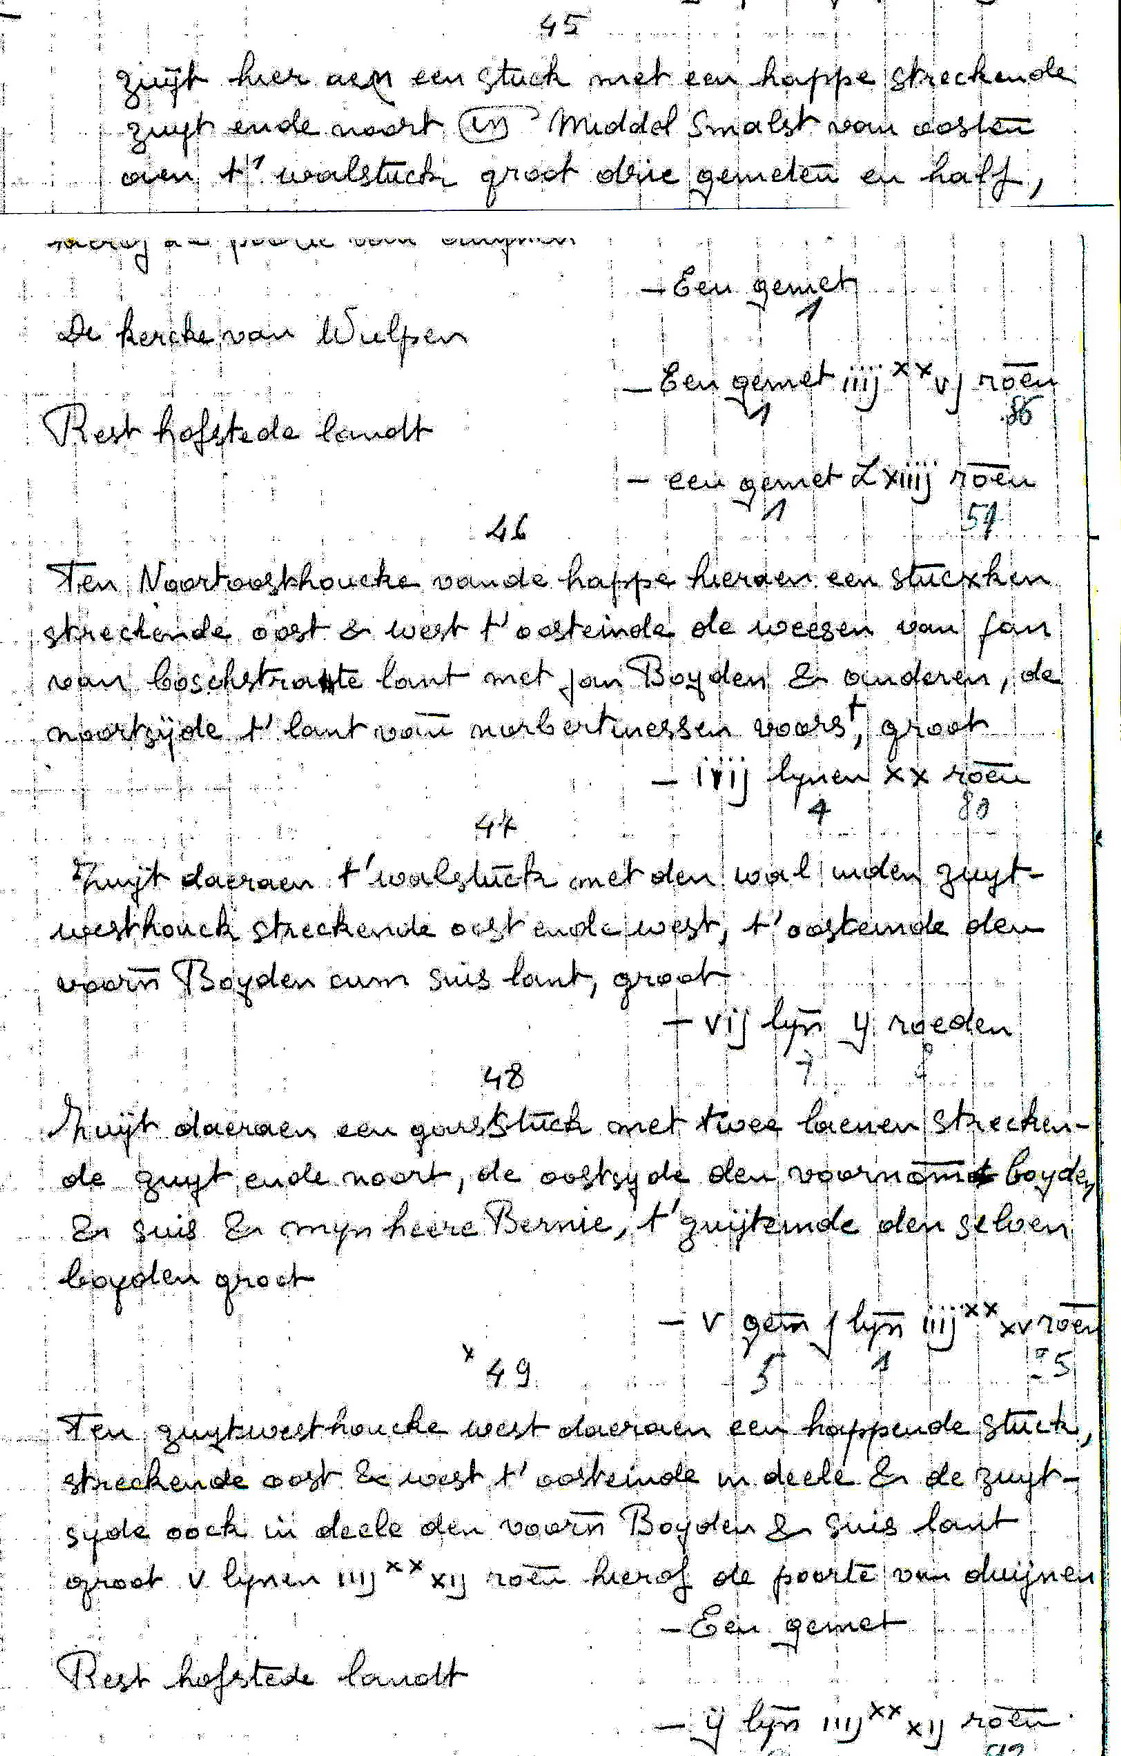 45
zuijt hier aen een stuck met een happe streckende
zuyt ende noort in middel smalst van oosten
aen t' walstuck groot drie gemeten en half,
hierof de poorte van duijnen
- Een gemet
1
De kercke van Wulpen
- Een gemet iiij xx vj roēn
1 86
Rest hofstede landt
- een gemet Lxiiij roēn
1
46
Ten Noortoosthoucke vande happe hieraen een stucxken
streckende oost & west t'oosteinde de weesen van jan
van boschstraete lant met jan Boyden & anderen, de
noortzijde t' lant van norbertinessen voorst, groot
- iiij lynen xx roēn
4
47
Zuijt daeraen t'walstuck met den wal inden zuyt-
westhouck streckende oost ende west, t'oosteinde den
voorn̄ Boyden cum suis lant, groot
- vij lyn̄ ij roeden
7 2
48
Zuijt daeraen een garsstuck met twee laenen strecken-
de zuyt ende noort, de oostsyde den voornōmt boyden
& suis & mijn heere Bernie, t'zuijteinde den selven
boyden groot
- v gem̄ j lyn̄ iiij xx xv roēn
5 1 5
x 49
Ten zuytwesthoucke west daeraen een happende stuck,
streckende oost & west t'oosteinde in deele & de zuyt-
syde oock in deele den voorn̄ Boyden & suis lant
groot v lynen iiij xx xij roēn hierof de poorte van duijnen
- Een gemet
Rest hofstede landt
- ij lyn̄ iiij xx xij roēn